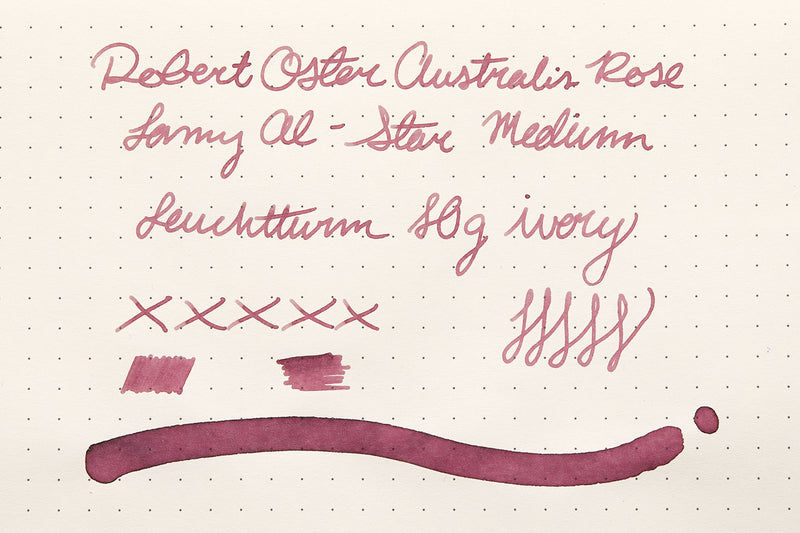 Robert Oster Australis Rose
Lamy Al-Star Medium
Leuchtturm 80g ivory
xxxxx